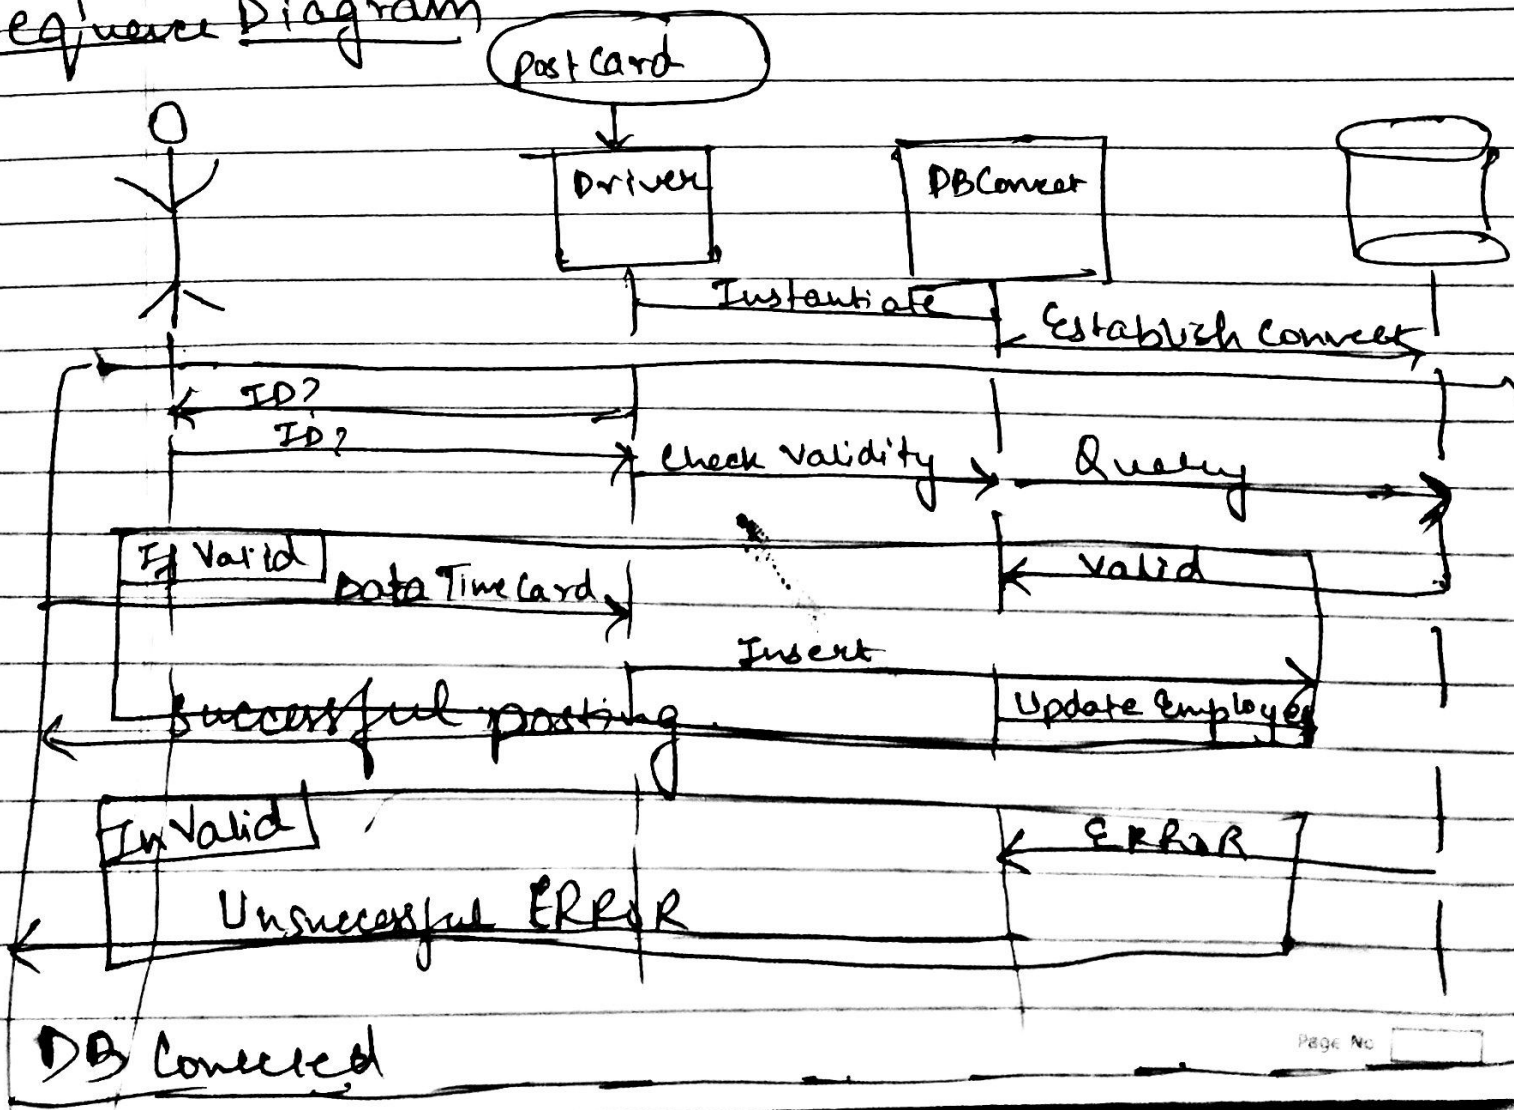 equence Diagram
postcard
Driver
DBConnect
Instantiate
Establish Connect
ID?
ID?
Check Validity
Query
If Valid
Valid
Data Time Card
Insert
Update Employee
Successful posting
InValid
ERROR
Unsuccessful ERROR
Page No
DB Connected